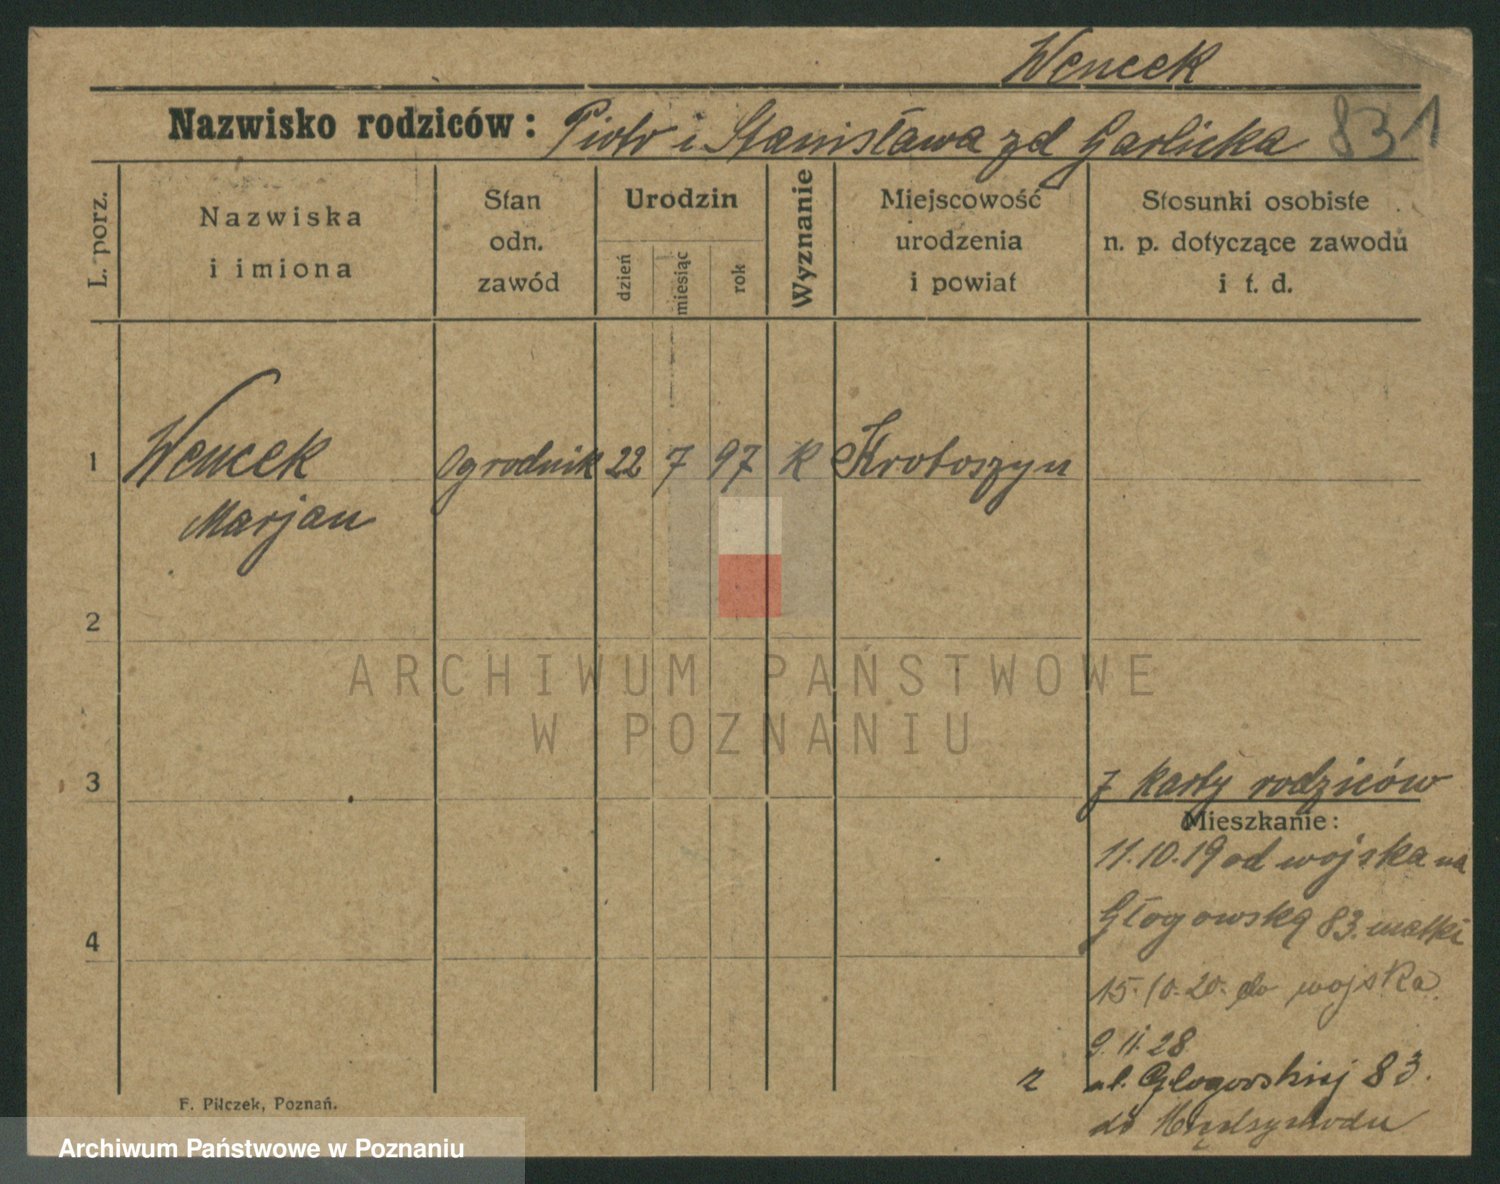 Wencek
Nazwisko rodziców: Piotr i Stanisława zd Garlicka 831
L. porz.
Nazwiska
i imiona
Stan
odn.
zawód
Urodzin
dzień
miesiąc
rok
Wyznanie
Miejscowość
urodzenia
i powiat
Stosunki osobiste
n. p. dotyczące zawodu
i t. d.
1 Wencek ogrodnik 22 7 97 K Krotoszyn
Marjan
2
ARCHIWUM PAŃSTWOWE
W POZNANIU
3
z karty rodziców
Mieszkanie:
11.10.19 od wojska na
Głogowską 83. matki
4
15.10.20. do wojska
9.11.28
z ul. Głogowskiej 83.
do Międzychodu
F. Pilczek, Poznań.
Archiwum Państwowe w Poznaniu